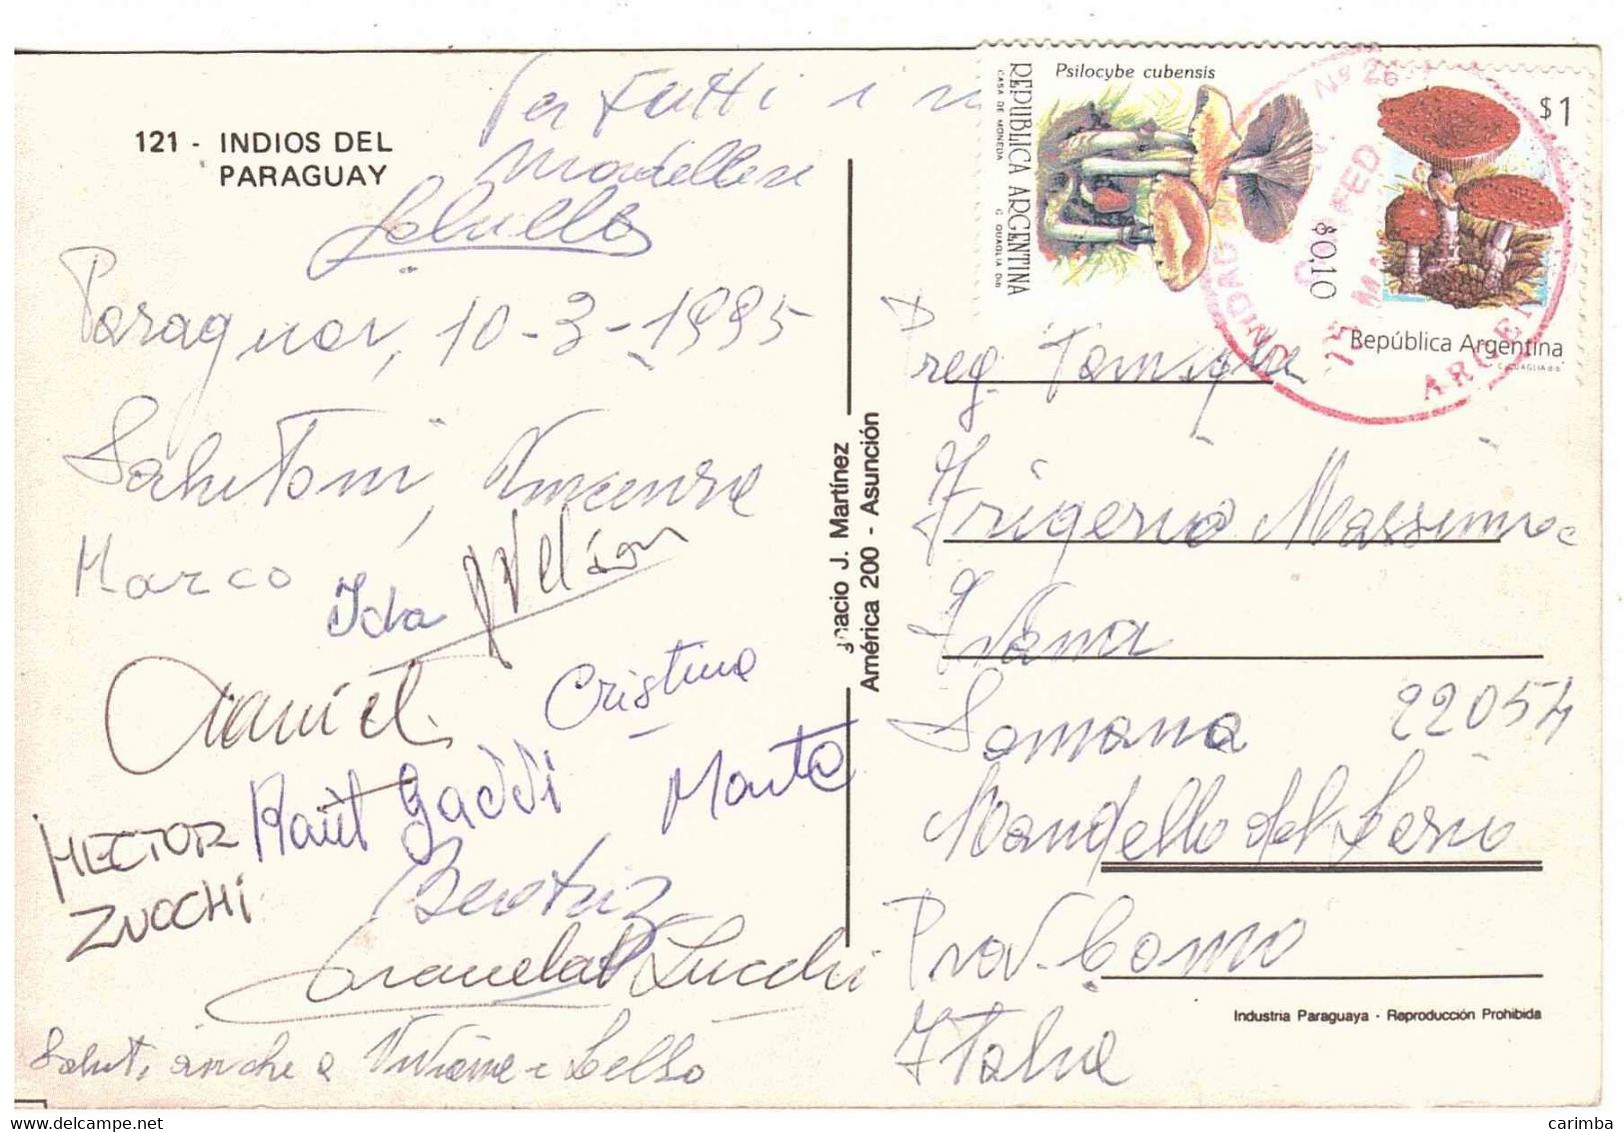 121 - INDIOS DEL
PARAGUAY
Per tutti i
Mandellesi
Paraguai, 10-3-1995
Salutoni, Vincenza
Marco
Ida Nelson
Daniel
Cristina
Raúl Gaddi
Marta
HECTOR
ZUCCHI
Beatriz
Graciela Zucchi
Saluti anche a Viviana e Lello
Ignacio J. Martínez
América 200 - Asunción
Psilocybe cubensis
REPUBLICA ARGENTINA
CASA DE MONEDA
G. QUAGLIA DIB.
$0,10
$1
República Argentina
Nº 26
ARGEN
Preg. Famiglia
Frigerio Massimo e
Ivana
Somana 22054
Mandello del Lario
Prov. Como
Italia
Industria Paraguaya - Reproducción Prohibida
carimba